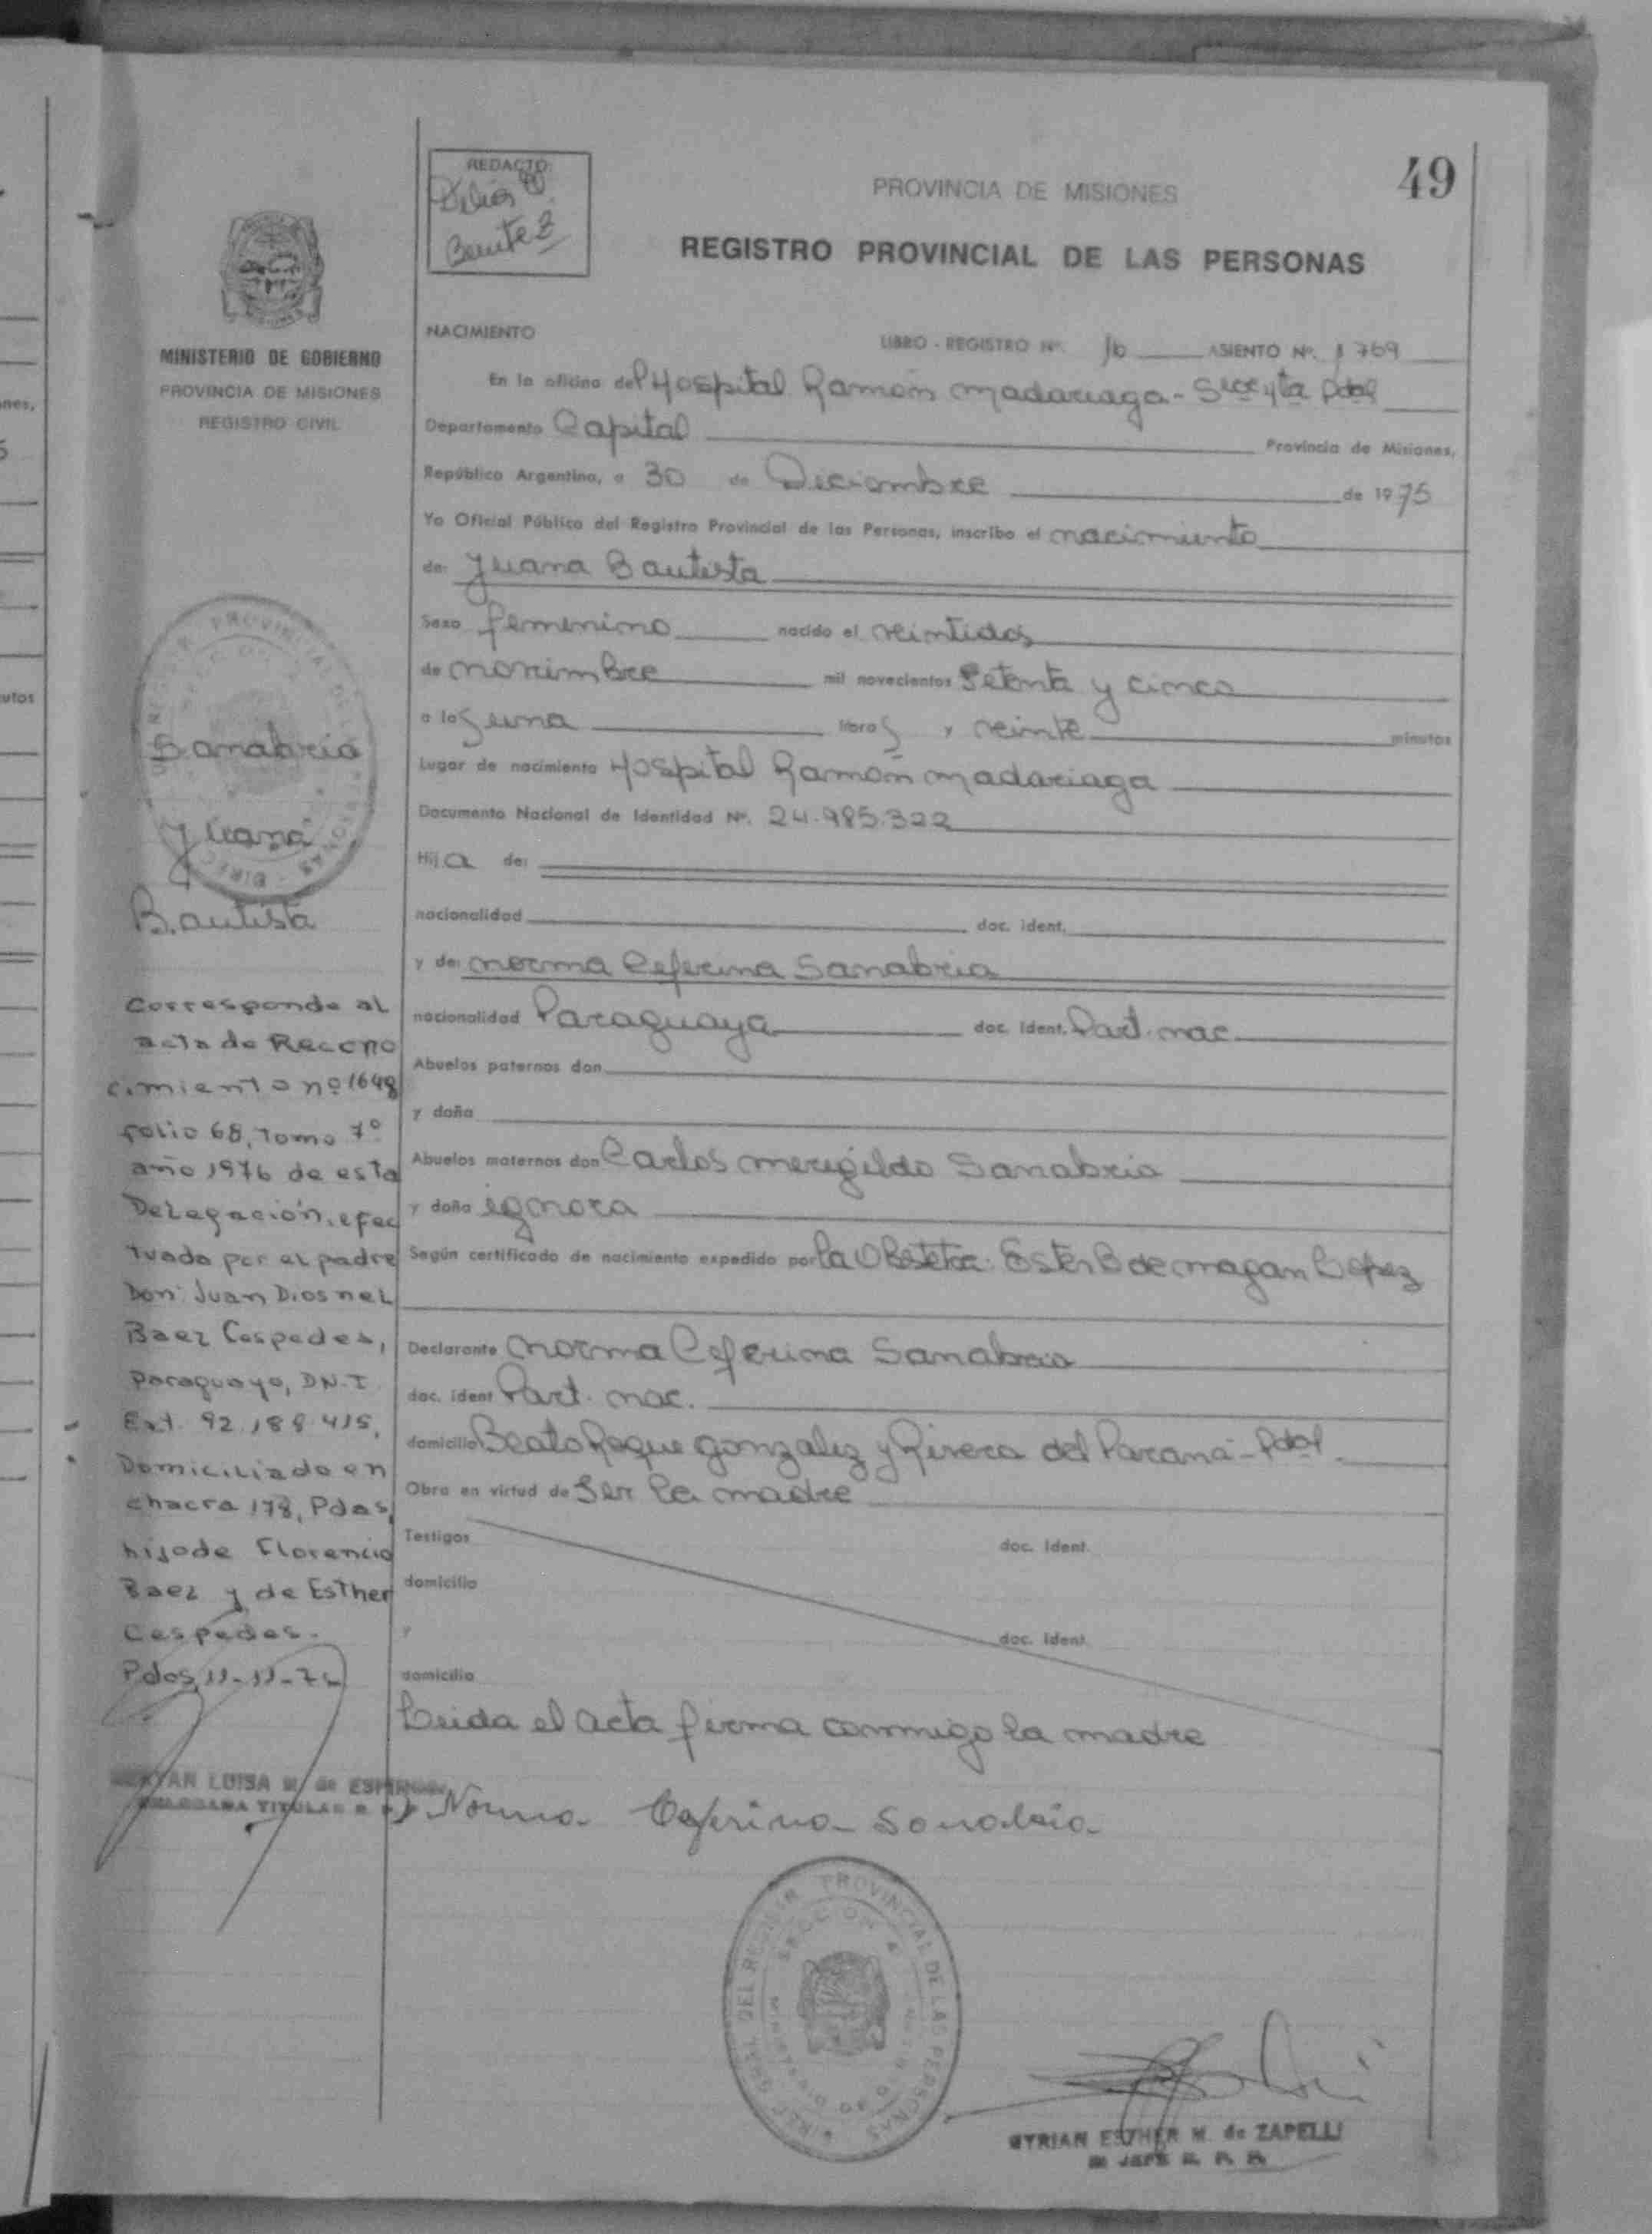 49
REDACTO:
Benitez
PROVINCIA DE MISIONES
REGISTRO PROVINCIAL DE LAS PERSONAS
MINISTERIO DE GOBIERNO
PROVINCIA DE MISIONES
REGISTRO CIVIL
NACIMIENTO
LIBRO - REGISTRO Nº. 16 ASIENTO Nº. 1769
En la oficina del Hospital Ramón Madariaga - Pdas
Departamento Capital Provincia de Misiones,
República Argentina, a 30 de Deciembre de 1975
Yo Oficial Público del Registro Provincial de las Personas, inscribo el nacimiento
de: Juana Bautista
Sexo femenino nacido el veintidos
de noviembre mil novecientos Setenta y cinco
a las una horas y veinte minutos
Lugar de nacimiento Hospital Ramón Madariaga
Documento Nacional de Identidad Nº. 24.985.322
Hija de:
nacionalidad doc. ident.
y de: Norma Ceferina Sanabria
nacionalidad Paraguaya doc. ident. Part. nac.
Abuelos paternos don
y doña
Abuelos maternos don Carlos Merigildo Sanabria
y doña ignora
Según certificado de nacimiento expedido por la Obstetra: Ester B de Magan Lopez
Declarante Norma Ceferina Sanabria
doc. ident Part. nac.
domicilio Beato Roque Gonzalez y Rivera del Paraná - Pdas.
Obra en virtud de Ser la madre
Testigos doc. ident.
domicilio
y doc. ident.
domicilio
Leida el acta firma conmigo la madre
Norma Ceferina Sanabria
Sanabria
Juana
Bautista
Corresponde al
acta de Recono
cimiento nº 1648
folio 68, Tomo 7º
año 1976 de esta
Delegación, efec
tuada por el padre
Don: Juan Diosnel
Baez Cespedes,
paraguayo, D.N.I.
Ext. 92.188.415,
Domiciliado en
chacra 178, Pdas,
hijo de Florencio
Baez y de Esther
Cespedes.
Pdas, 11-11-76
LUISA M de
TITULAR
DIREC. GRAL. DEL REGISTR. PROVINCIAL DE LAS PERSONAS
MYRIAN ESTHER M. de ZAPELLI
JEFE R. P. P.